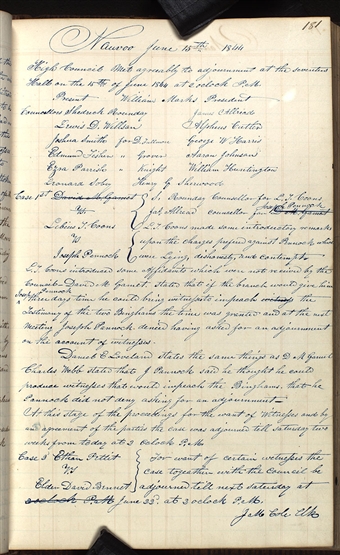 181
Nauvoo June 15th 1844
High Council Met agreeably to adjournment at the seventies
Hall on the 15th of June 1844 at 2 oclock P.M.
Present William Marks President
Counsellors Shedrick Roundy James Allred
Lewis D. Willson Alpheus Cutler
Joshua Smith for D. George W Harris
Edmund Fisher " Grover Aaron Johnson
Ezra Parrish " Knight William Huntington
Leonard Soby Henry G Sherwood
Case 1st David M. Gamet S. Roundy Counsellor for L. T. Coons
vs Jas Allread counsellor for Joseph Pennock
Lebius T. Coons L. T. Coons made some introductory remarks
vs upon the charges prefered against Pennock which
Joseph Pennock were Lying, dishonesty, and contempt
L. T. Coons introduced some affidavits which were not received by the
Council. David M. Gamet stated that if the branch would give him
Thursdays time he could bring witnesses to impeach the
testimony of the two Binghams the time was granted and at the next
Meeting Joseph Pennock denied having asked for an adjournment
on the account of witnesses
Daniel E Loveland states the same things as D. M Gamet
Charles Webb states that J Pennock said he thought he could
produce witnesses that would impeach the Binghams, that he
Pennock did not deny asking for an adjournment
At this stage of the proceedings for the want of Witnesses and by
and agreement of the parties the case was adjourned till Saturday two
weeks from today at 2 Oclock P.M
Case 2d Ethan Pettit For want of certain witnesses the
vs case together with the Council be
Elder David Bennet adjourned till next saturday at
2 oclock P.M. June 22d. at 2 oclock P.M.
J M Cole Clk